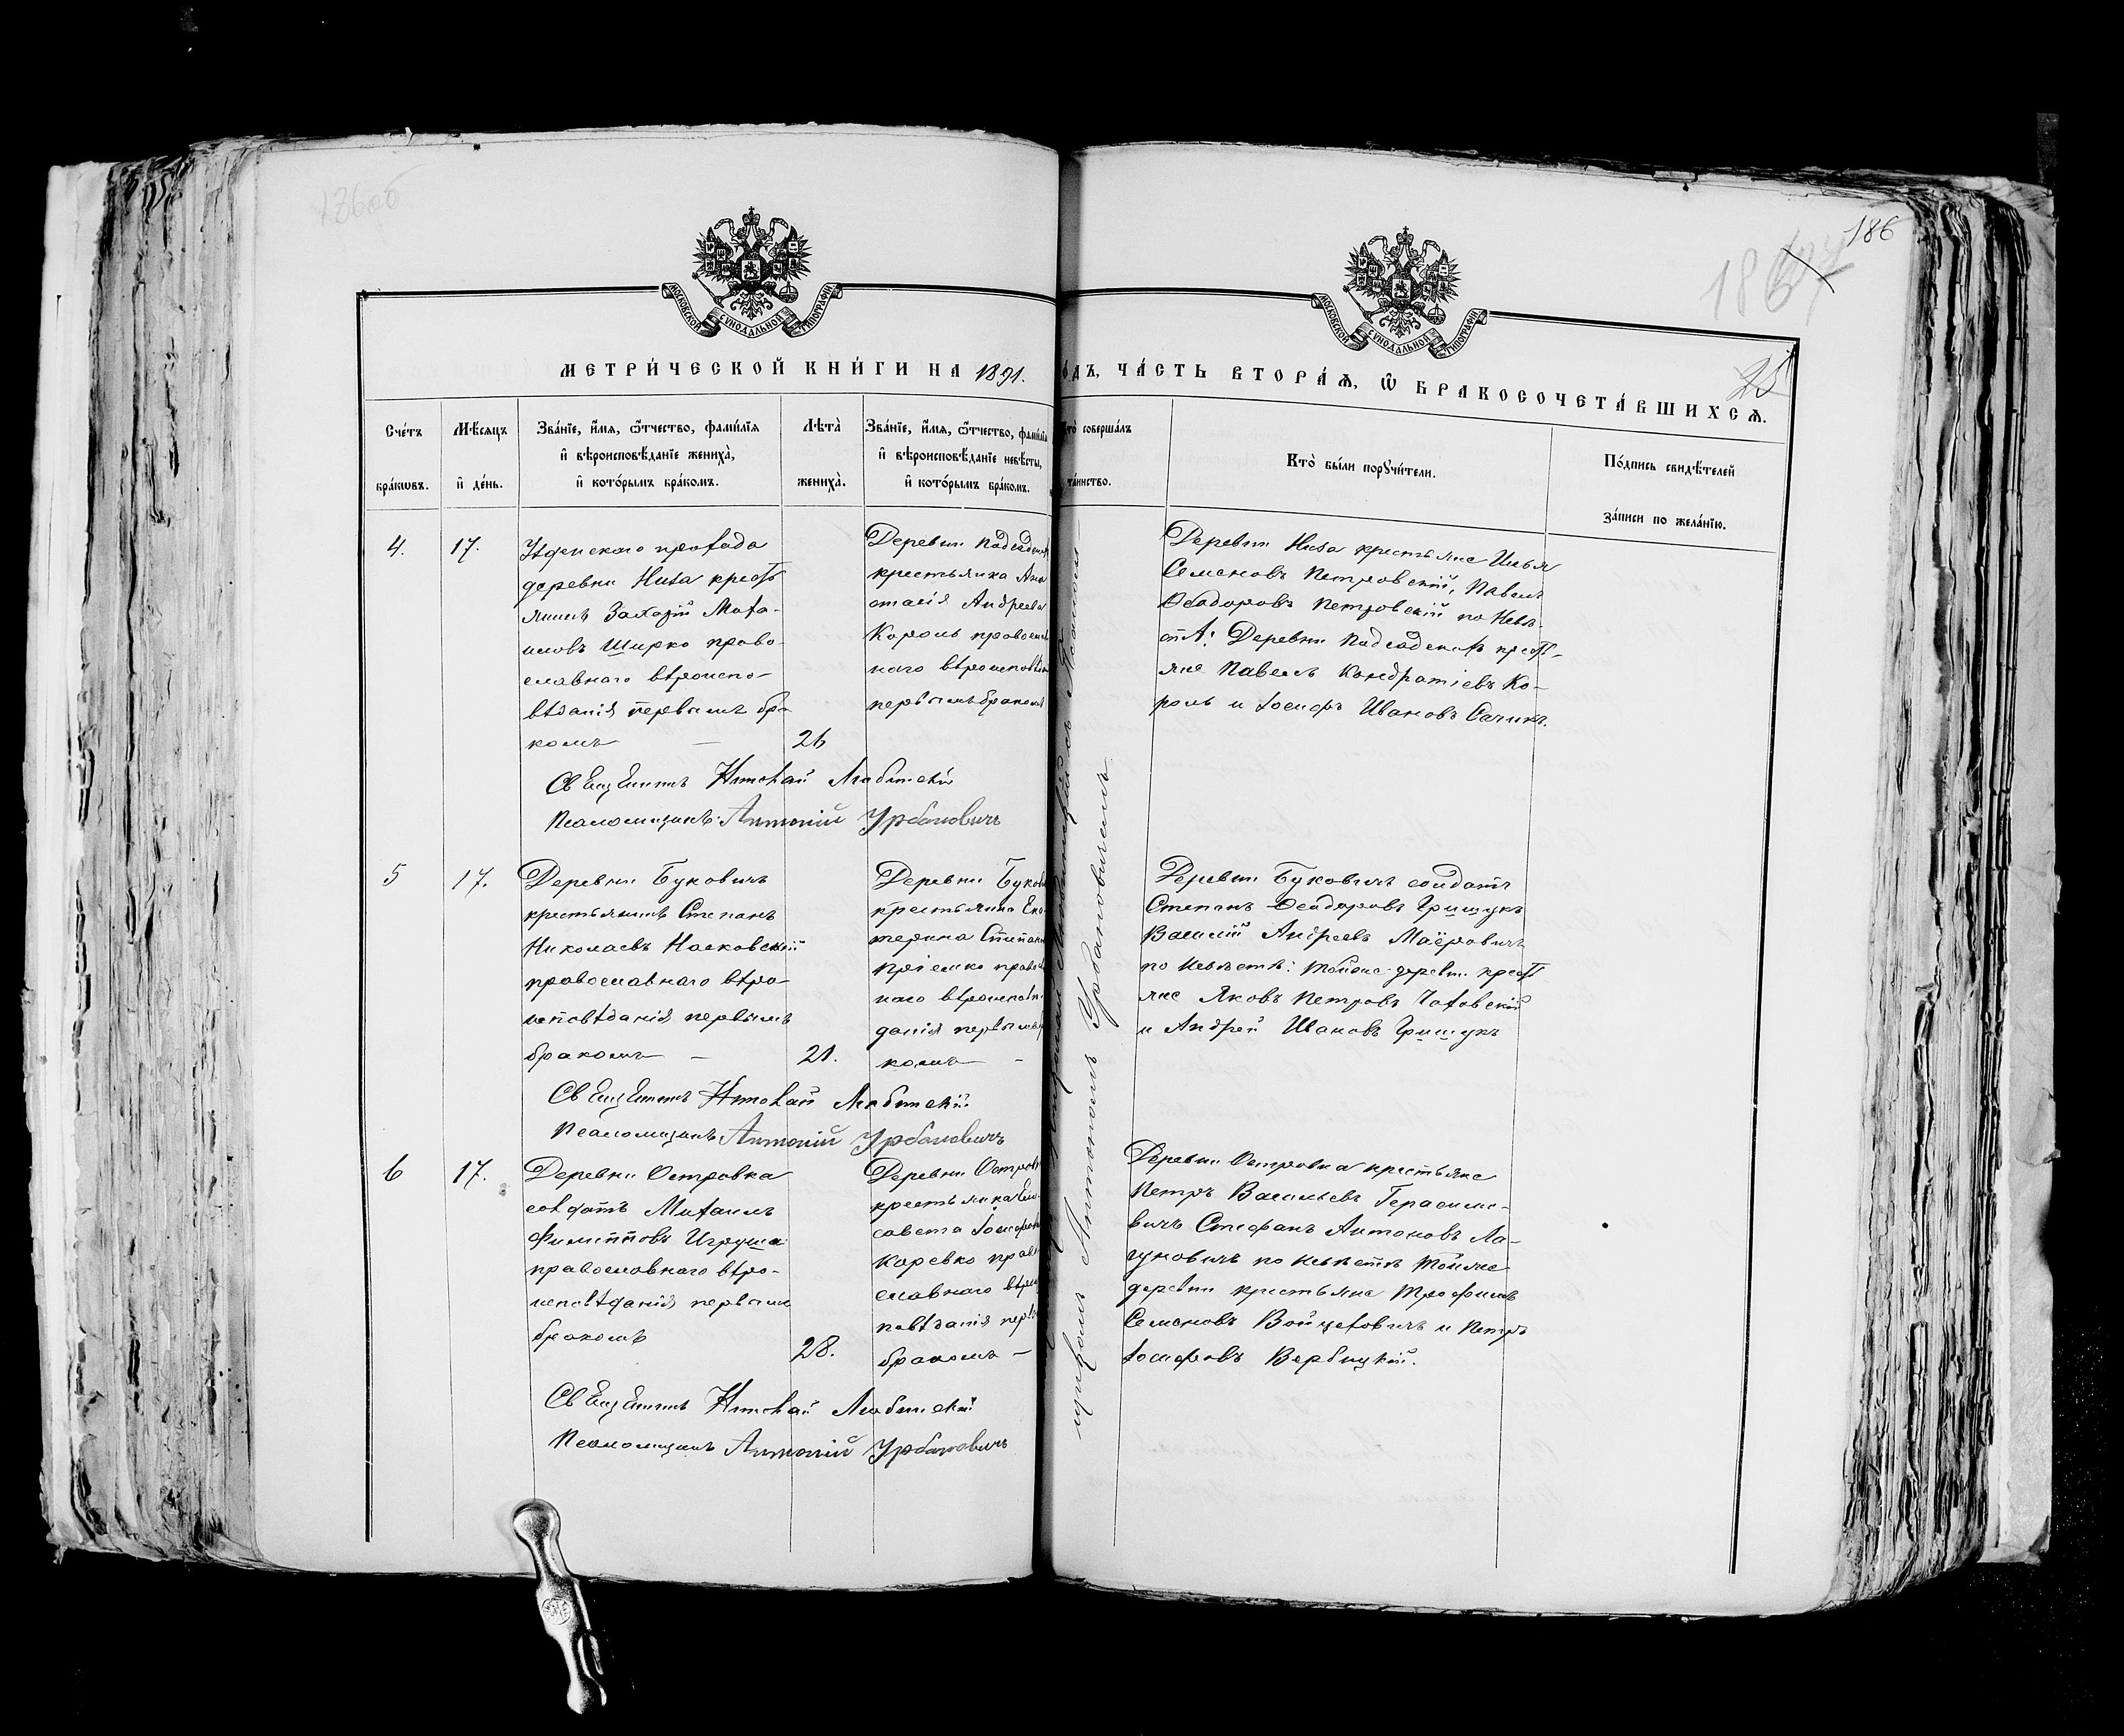 186
МОСКОВСКОЙ СУНОДАЛЬНОЙ ТИПОГРАФІИ
МОСКОВСКОЙ СУНОДАЛЬНОЙ ТИПОГРАФІИ
МЕТРИ́ЧЕСКОЙ КНИ́ГИ НА 1891.
ОДЪ, ЧА́СТЬ ВТОРА́Ѧ, Ѽ БРАКОСОЧЕТА́ВШИХСѦ.
25
Сче́тъ
бра́кѡвъ.
Мѣ́сяцъ
и҆ де́нь.
Зва́нїе, и҆́мя, ѻ҆́тчество, фами́лїя
и҆ вѣроисповѣ́данїе жениха̀,
и҆ кото́рымъ бра́комъ.
Лѣта̀
жениха̀.
Зва́нїе, и҆́мя, ѻ҆́тчество, фами́лїя
и҆ вѣроисповѣ́данїе невѣ́сты,
и҆ кото́рымъ бра́комъ.
то̀ соверша́лъ
та́инство.
Кто̀ бы́ли порꙋчи́тели.
По́дпись свидѣ́телей
за́писи по жела́нїю.
4.
17.
деревни Нива крест
янинъ Захарій Миха-
иловъ Ширко право-
славнаго вѣроиспо-
вѣданія первымъ бра-
комъ —
26
Деревни
крестьянка Ана
стасія Андреева
Король правосла
наго вѣроисповѣда
первымъ бракомъ
Деревни Нива крестьяне Илья
Семеновъ Петровскій, Павелъ
Ѳеодоровъ Петровскій по невѣ-
стѣ: Деревни крест-
яне Павелъ Кондратіевъ Ко-
роль и Іосифъ Ивановъ
Священникъ Николай
Псаломщикъ Антоній Урбановичъ
5
17.
Деревни Буковичъ
крестьянинъ Степанъ
Николаевъ Насковскій
православнаго вѣро-
исповѣданія первымъ
бракомъ —
21.
Деревни Буков
крестьянка Ека
терина Степан
наго вѣроисповѣ-
данія первымъ
комъ —
Деревни Буковичъ солдатъ
Степанъ Ѳеодоровъ Грищукъ
Василій Андреевъ Маёровичъ
по невѣстѣ: тойже деревни крест
яне Яковъ Петровъ
и Андрей Ивановъ Грищукъ
Священникъ Николай
Псаломщикъ Антоній Урбановичъ
6
17.
Деревни Островка
солдатъ Михаилъ
Филипповъ Игруша
православнаго вѣро-
исповѣданія первымъ
бракомъ
28.
Деревни Островк
крестьянка Ели-
савета Іосифова
Каревко право
славнаго вѣроис
повѣданія перв
бракомъ —
Деревни Островка крестьяне
Петръ Васильевъ Герасимо-
вичъ Стефанъ Антоновъ Ла-
гуновичъ по невѣстѣ тойже
деревни крестьяне Трофимъ
Семеновъ Войцеховичъ и Петръ
Іосифовъ Вербицкій.
Священникъ Николай
Псаломщикъ Антоній Урбановичъ
Антоніемъ Урбановичемъ